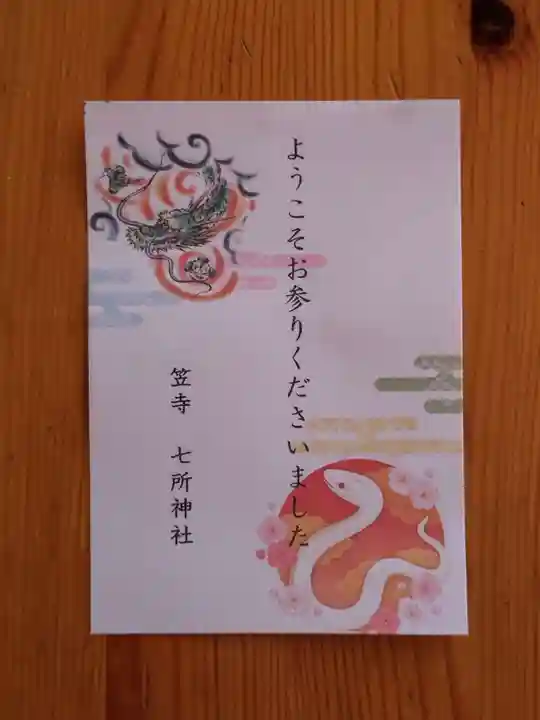 ようこそお参りくださいました
笠寺 七所神社